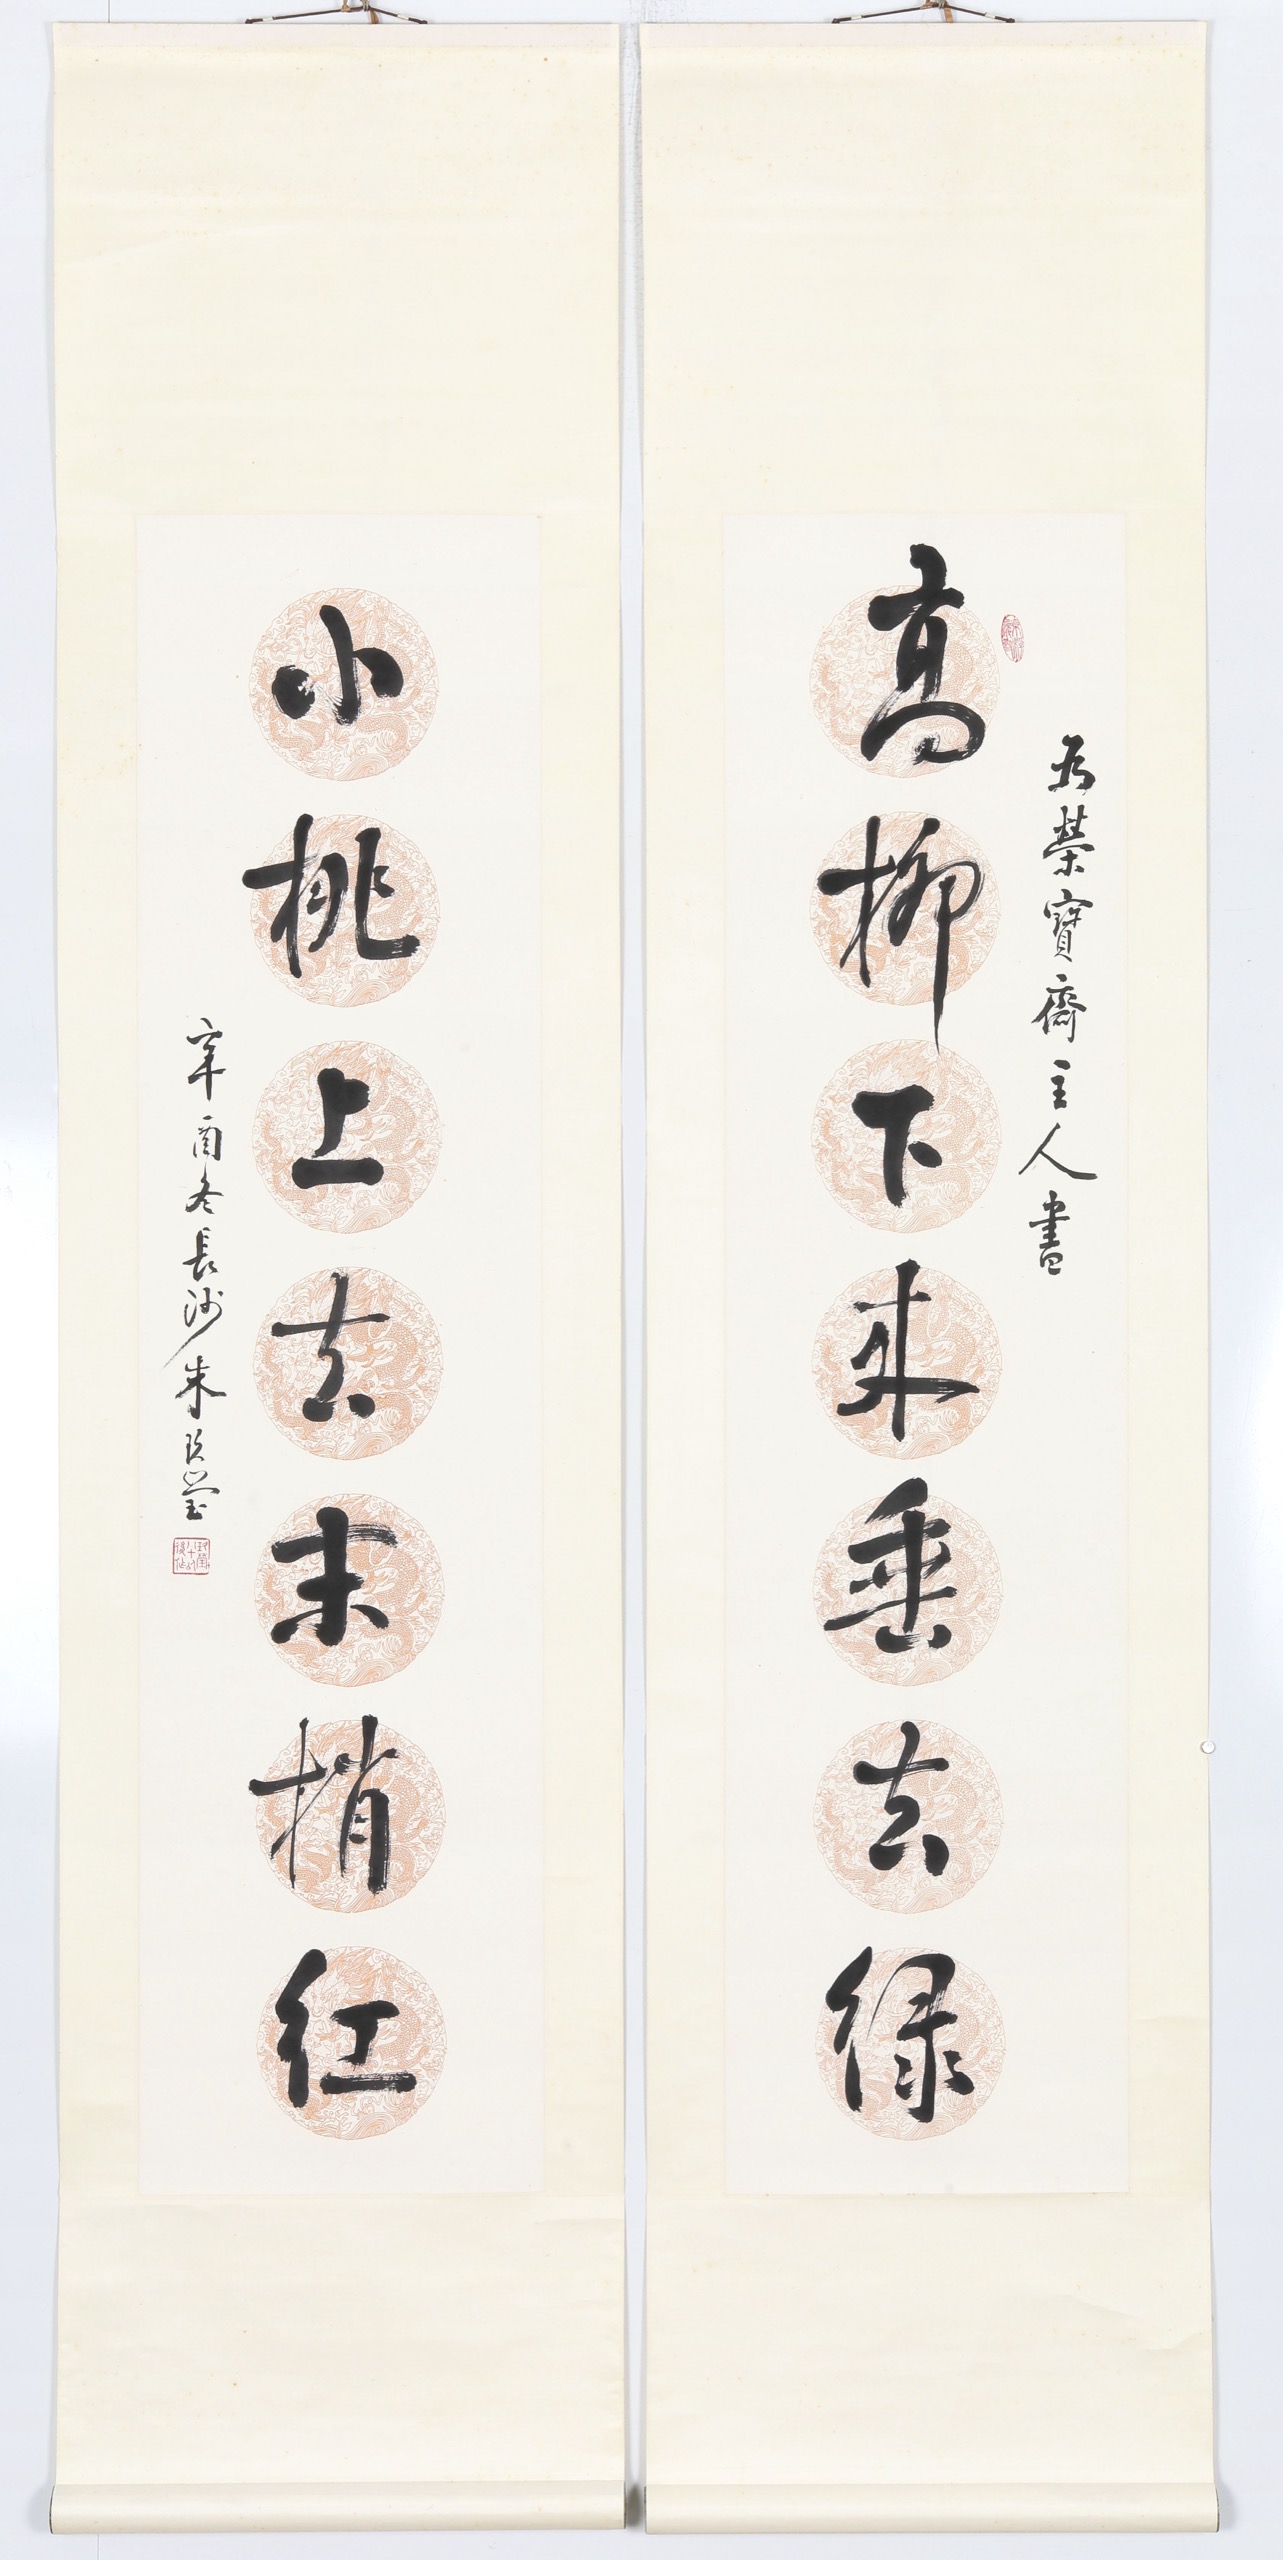 高柳下來垂去綠
為榮寶齋主人書
小桃上去末梢紅
辛酉冬長沙朱玖瑩